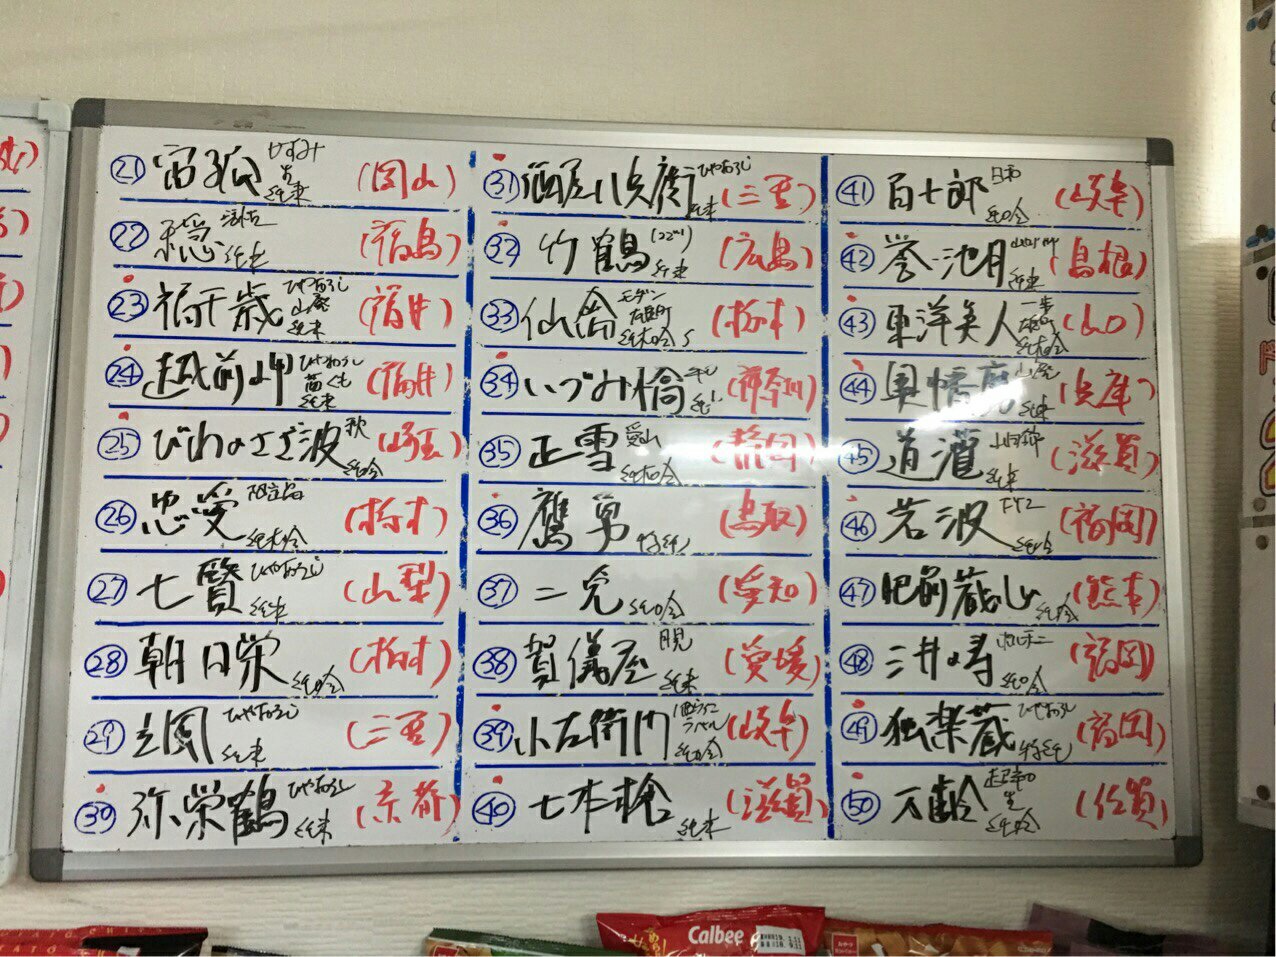 ㉑ 宙狐 純米 (岡山)
㉒ 穏 純米 (福島)
㉓ 福千歳 ひやおろし 山廃 純米 (福井)
㉔ 越前岬 ひやおろし 純米 (福井)
㉕ びわのさざ波 秋 純吟 (埼玉)
㉖ 忠愛 純米吟 (栃木)
㉗ 七賢 ひやおろし 純米 (山梨)
㉘ 朝日栄 純吟 (栃木)
㉙ 颪 ひやおろし 純米 (三重)
㉚ 弥栄鶴 ひやおろし 純米 (京都)
㉛ 酒屋八兵衛 ひやおろし 純米 (三重)
㉜ 竹鶴 純米 (広島)
㉝ 仙禽 モダン 純米吟 (栃木)
㉞ いづみ橋 (神奈川)
㉟ 正雪 愛山 純米吟 (静岡)
㊱ 鷹勇 特純 (鳥取)
㊲ 二兎 純吟 (愛知)
㊳ 賀儀屋 月見 純米 (愛媛)
㊴ 小左衛門 ラベル 純吟 (岐阜)
㊵ 七本槍 純米 (滋賀)
㊶ 百十郎 日和 純吟 (岐阜)
㊷ 誉池月 純米 (島根)
㊸ 東洋美人 一歩 純米吟 (山口)
㊹ 奥播磨 山廃 純米 (兵庫)
㊺ 道灌 山田錦 純米 (滋賀)
㊻ 若波 純吟 (福岡)
㊼ 肥前蔵心 純吟 (熊本)
㊽ 三井の寿 純吟 (福岡)
㊾ 独楽蔵 ひやおろし 特純 (福岡)
㊿ 万齢 純吟 (佐賀)
Calbee